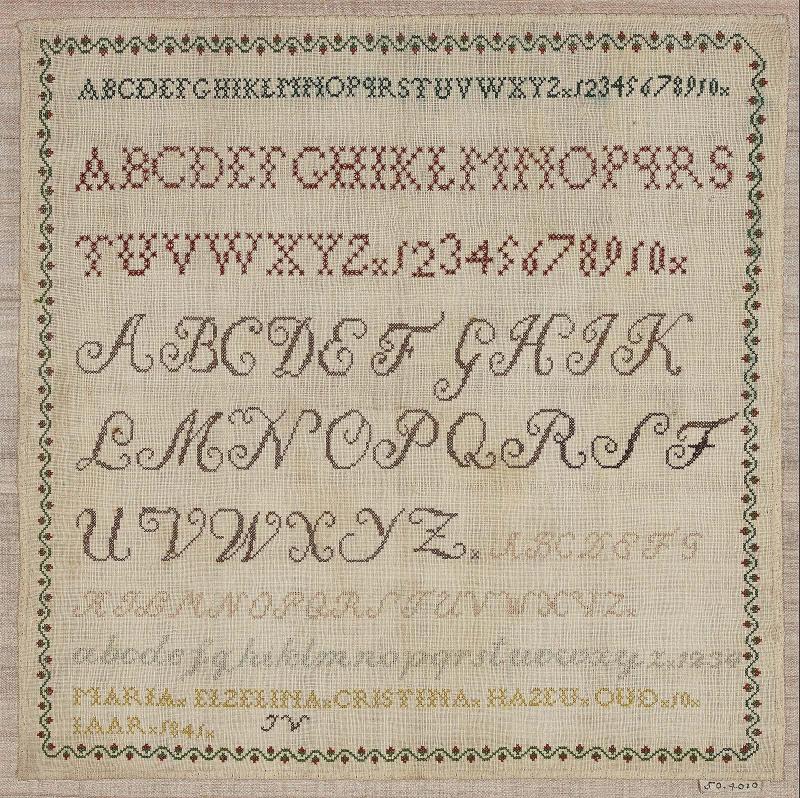 ABCDEFGHIKLMNOPQRSTUVWXYZ×12345678910×
ABCDEFGHIKLMNOPQRS
TUVWXYZ×12345678910×
ABCDEFGHIK
LMNOPQRST
UVWXYZ×ABCDEFG
HIKLMNOPQRSTUVWXYZ×
abcdefghiklmnopqrstuvwxyz×1234
MARIA×ELZELINA×CRISTINA×HAZEU×OUD×10×
IAAR×1841× JW
50.4010